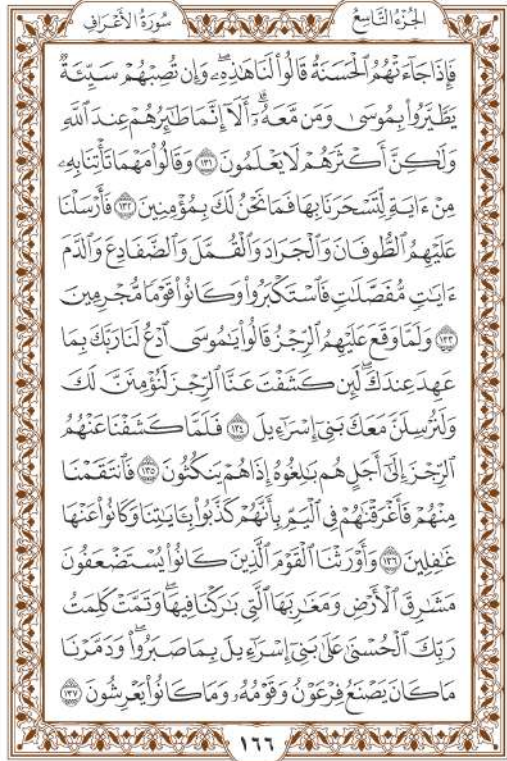 الجُزْءُ التَّاسِعُ سُورَةُ الأَعْرَافِ
فَإِذَا جَآءَتْهُمُ ٱلْحَسَنَةُ قَالُوا۟ لَنَا هَٰذِهِۦۖ وَإِن تُصِبْهُمْ سَيِّئَةٌ
يَطَّيَّرُوا۟ بِمُوسَىٰ وَمَن مَّعَهُۥٓۗ أَلَآ إِنَّمَا طَٰٓئِرُهُمْ عِندَ ٱللَّهِ
وَلَٰكِنَّ أَكْثَرَهُمْ لَا يَعْلَمُونَ ١٣١ وَقَالُوا۟ مَهْمَا تَأْتِنَا بِهِۦ
مِنْ ءَايَةٍ لِّتَسْحَرَنَا بِهَا فَمَا نَحْنُ لَكَ بِمُؤْمِنِينَ ١٣٢ فَأَرْسَلْنَا
عَلَيْهِمُ ٱلطُّوفَانَ وَٱلْجَرَادَ وَٱلْقُمَّلَ وَٱلضَّفَادِعَ وَٱلدَّمَ
ءَايَٰتٍ مُّفَصَّلَٰتٍ فَٱسْتَكْبَرُوا۟ وَكَانُوا۟ قَوْمًا مُّجْرِمِينَ
١٣٣ وَلَمَّا وَقَعَ عَلَيْهِمُ ٱلرِّجْزُ قَالُوا۟ يَٰمُوسَى ٱدْعُ لَنَا رَبَّكَ بِمَا
عَهِدَ عِندَكَۖ لَئِن كَشَفْتَ عَنَّا ٱلرِّجْزَ لَنُؤْمِنَنَّ لَكَ
وَلَنُرْسِلَنَّ مَعَكَ بَنِىٓ إِسْرَٰٓءِيلَ ١٣٤ فَلَمَّا كَشَفْنَا عَنْهُمُ
ٱلرِّجْزَ إِلَىٰٓ أَجَلٍ هُم بَٰلِغُوهُ إِذَا هُمْ يَنكُثُونَ ١٣٥ فَٱنتَقَمْنَا
مِنْهُمْ فَأَغْرَقْنَٰهُمْ فِى ٱلْيَمِّ بِأَنَّهُمْ كَذَّبُوا۟ بِـَٔايَٰتِنَا وَكَانُوا۟ عَنْهَا
غَٰفِلِينَ ١٣٦ وَأَوْرَثْنَا ٱلْقَوْمَ ٱلَّذِينَ كَانُوا۟ يُسْتَضْعَفُونَ
مَشَٰرِقَ ٱلْأَرْضِ وَمَغَٰرِبَهَا ٱلَّتِى بَٰرَكْنَا فِيهَاۖ وَتَمَّتْ كَلِمَتُ
رَبِّكَ ٱلْحُسْنَىٰ عَلَىٰ بَنِىٓ إِسْرَٰٓءِيلَ بِمَا صَبَرُوا۟ۖ وَدَمَّرْنَا
مَا كَانَ يَصْنَعُ فِرْعَوْنُ وَقَوْمُهُۥ وَمَا كَانُوا۟ يَعْرِشُونَ ١٣٧
١٦٦